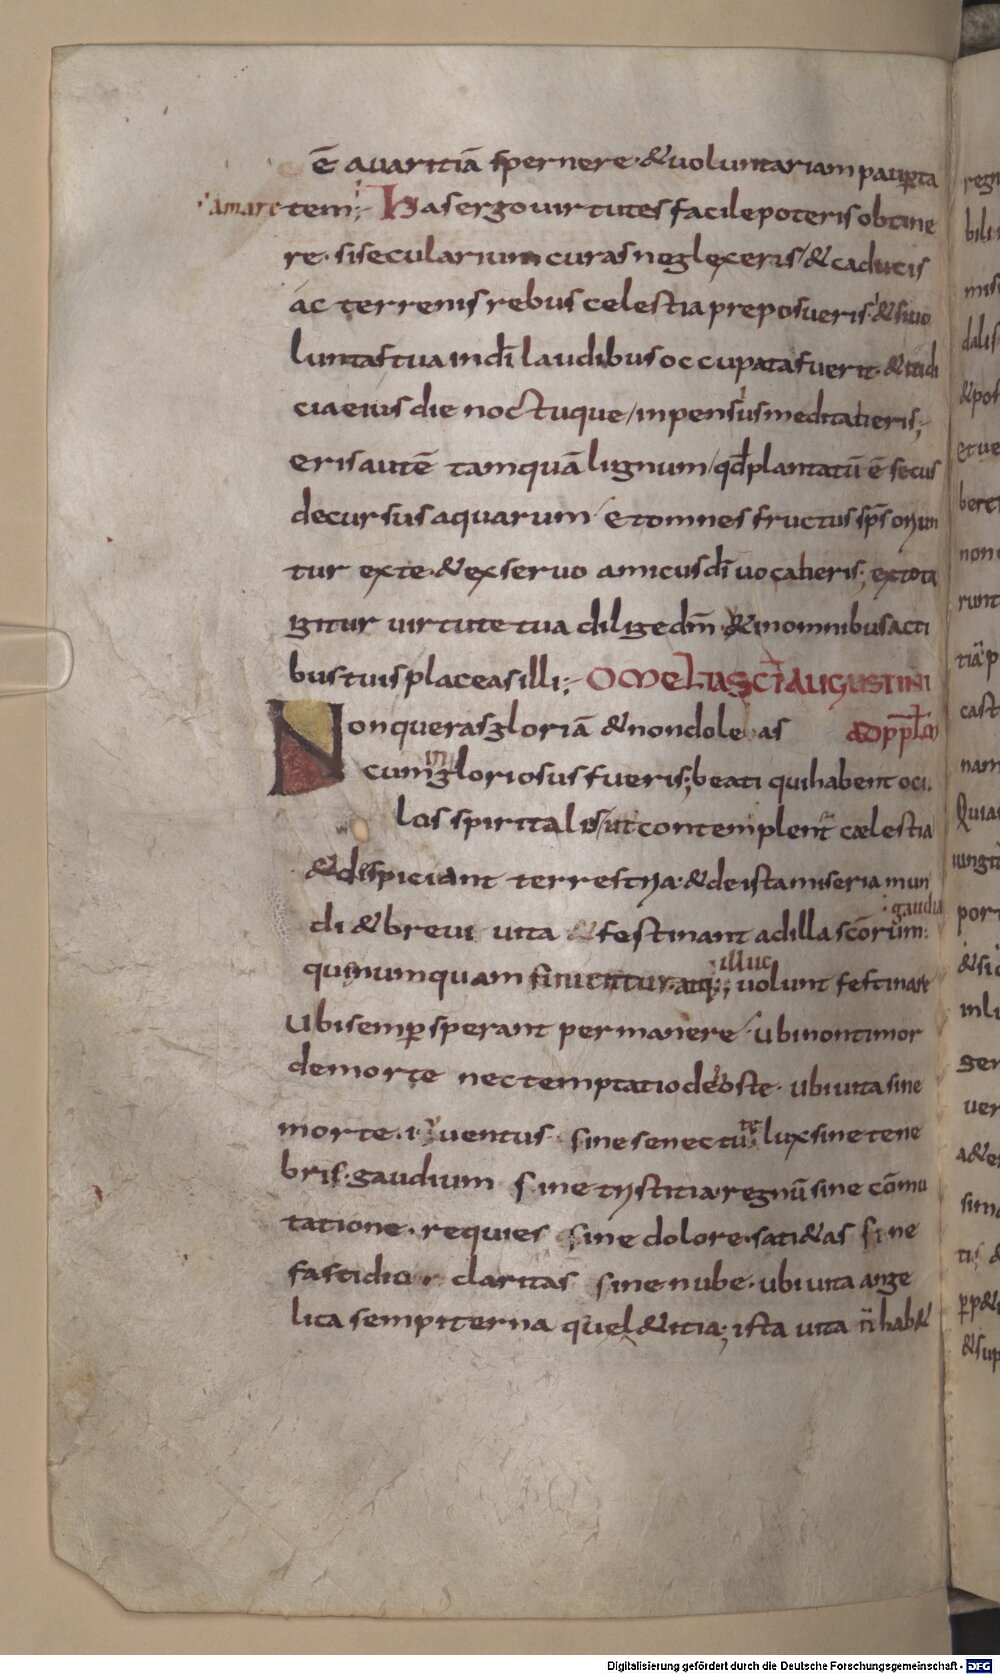 ē auaritiā spernere· & uoluntariam pauꝑta
amare tem; Has ergo uirtutes facile poteris obtine
re· si secularium curas neglexeris / & caducis
ac terrenis rebus celestia preposueris· & si uo
luntas tua in dī laudibus occupata fuerit· & iudi
cia eius die noctuque / inpensius meditaberis;
eris autē tamquā lignum / qđ plantatū ē secus
decursus aquarum / et omnes fructus sp̄s oriun
tur ex te· & ex seruo amicus dī uocaberis; ex tota
igitur uirtute tua dilige dm̄ & in omnibus acti
bus tuis placeas illi; OMELIA SCĪ AUGUSTINI
Non queras gloriā & non dolebas AD PP̄LM
cum ingloriosus fueris; beati qui habent ocu
los spiritalis / ut contemplent᷑ cælestia
& dispiciant terrestria· & de ista miseria mun
di & breui uita & festinant ad illa scōrum·
gaudia
qui numquam finientur· atq;; uolunt festinare
illuc
Ubi semꝑ sperant permanere / ubi non timor
de morte nec temptatio de oste· ubi uita sine
morte· iuuentus sine senectute lux sine tene
bris· gaudium sine tristitia· regnū sine cōmu
tatione· requies sine dolore· sati&as sine
fastidio claritas sine nube· ubi uita ange
lica sempiterna que l&itia; ista uita n̄ hab&
regn
bili
mis
dalis
& pos
et ue
bert
non
runt
tiā p
cast
nam
Quia
iungt
por
& sic
inli
ger
uer
a&e
sim
tis &
& sup
Digitalisierung gefördert durch die Deutsche Forschungsgemeinschaft - DFG